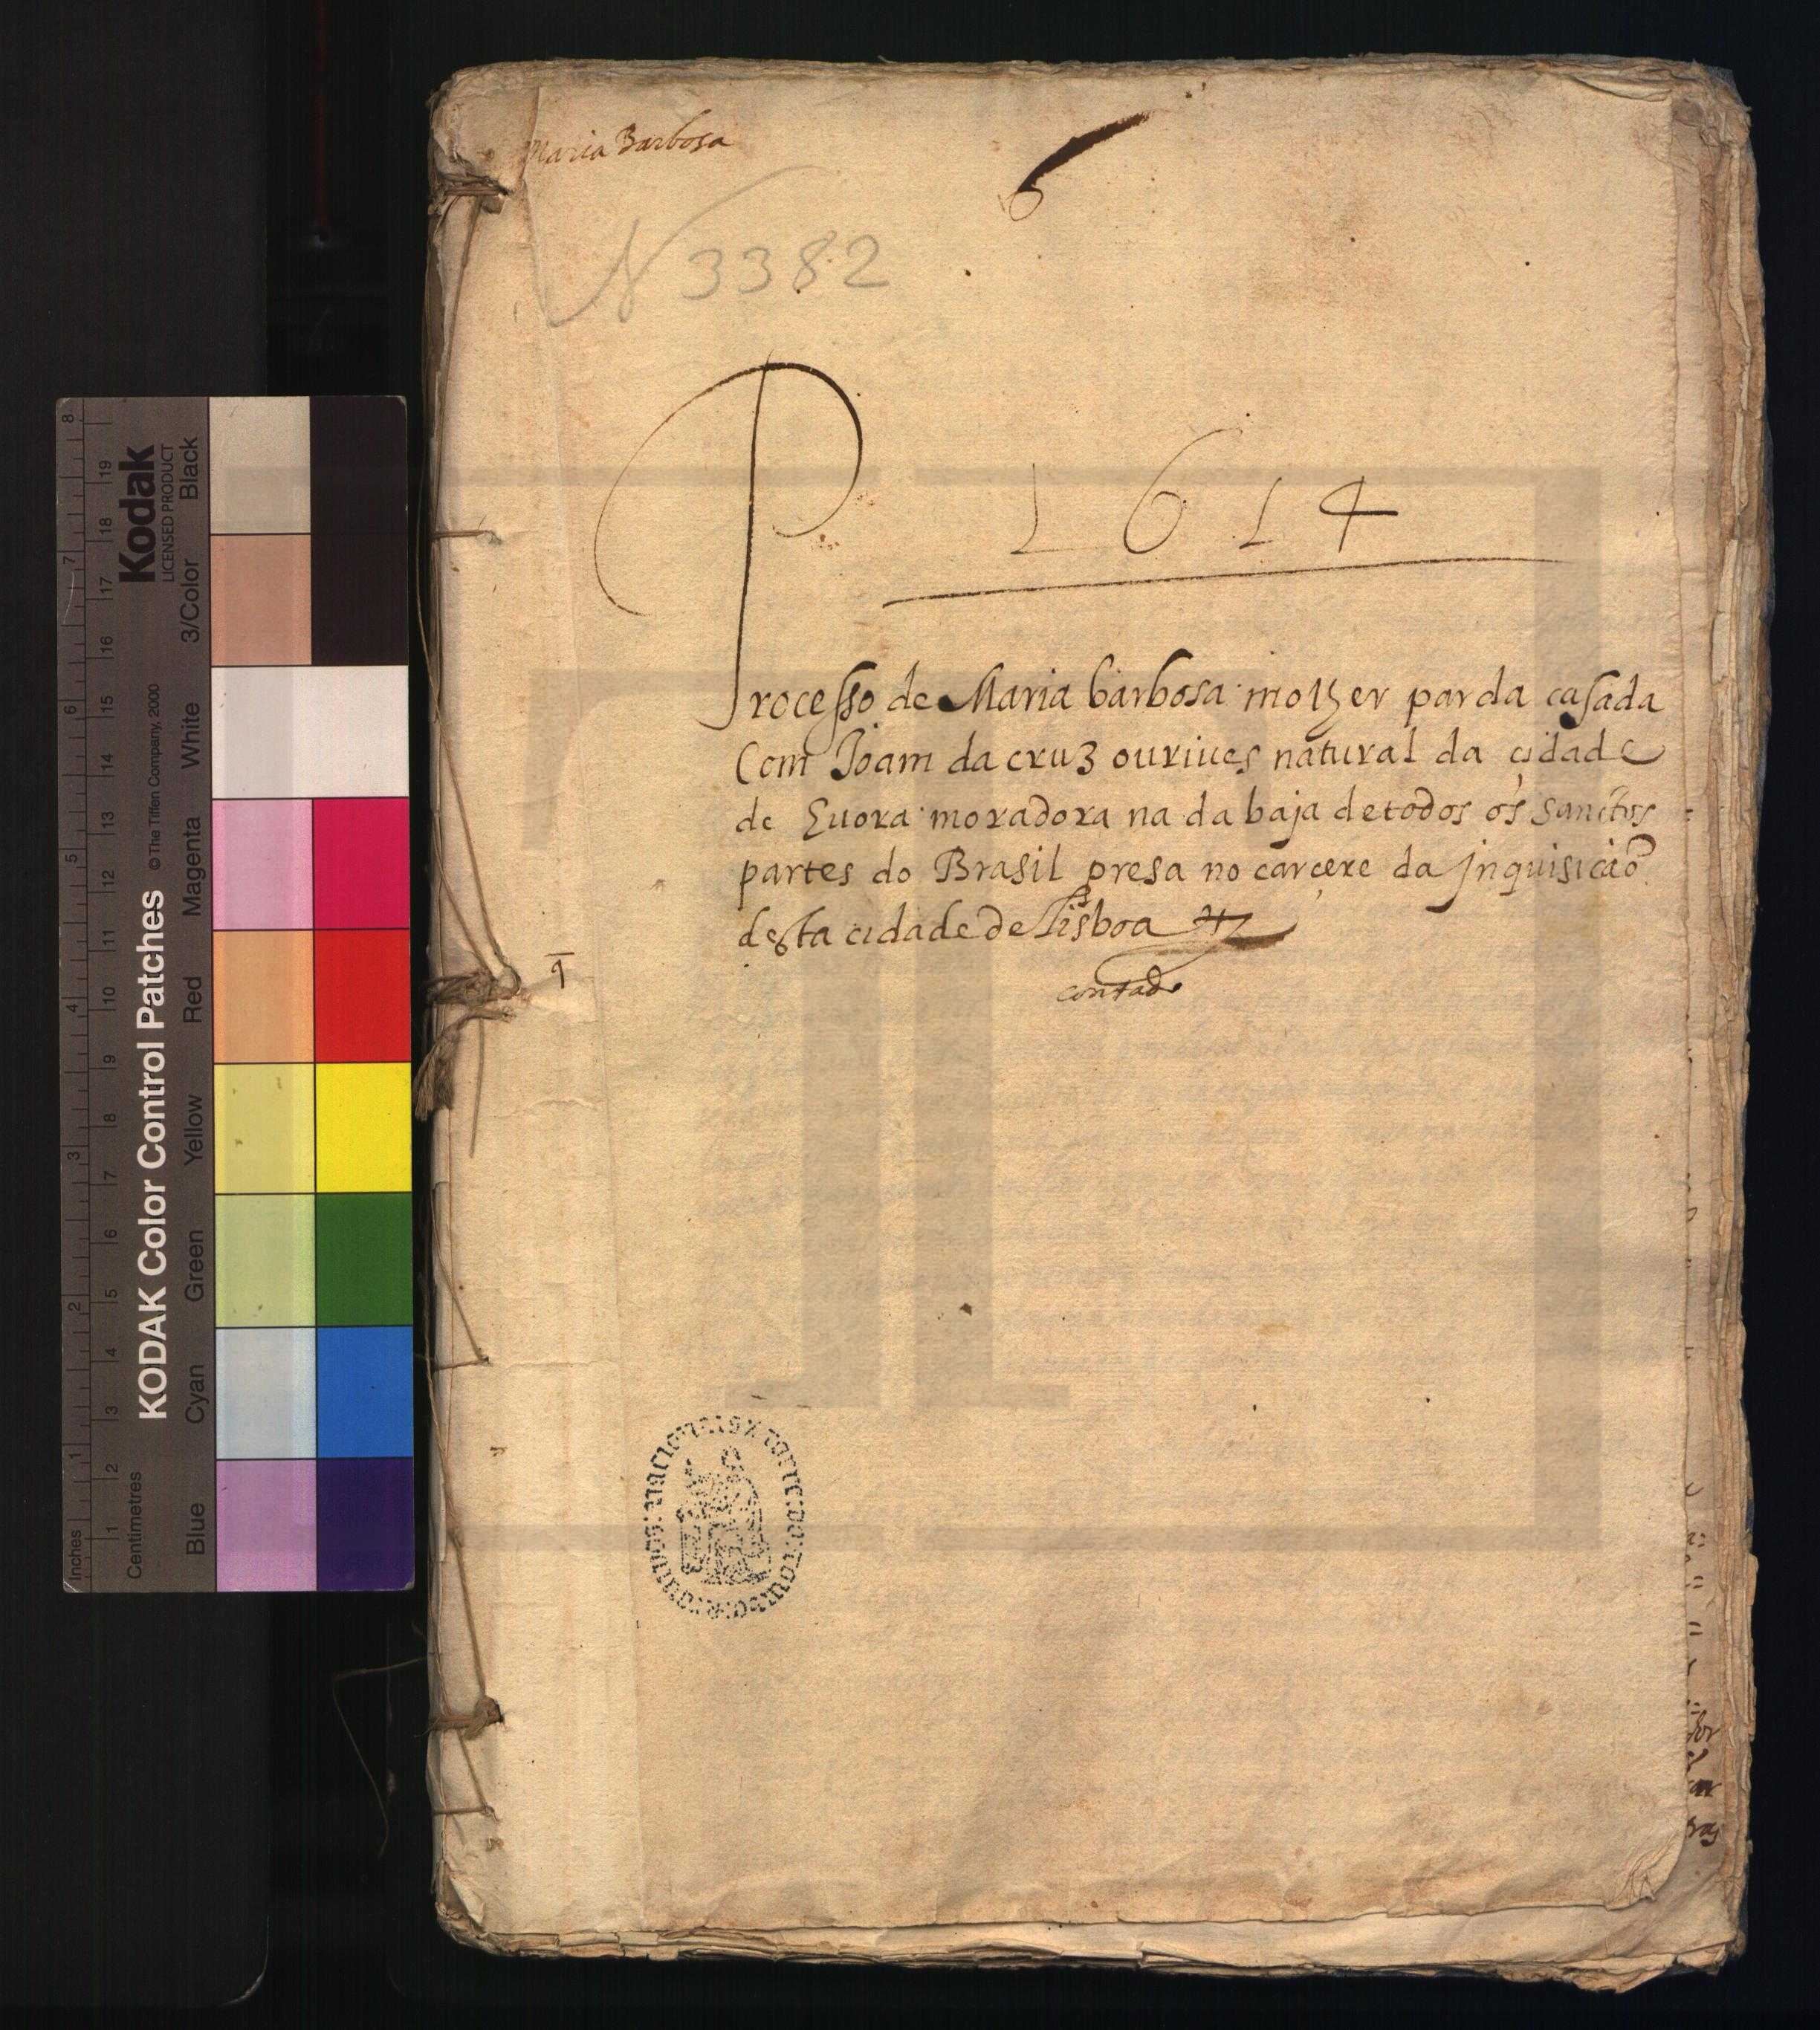 Maria Barbosa
6
N 3382
1614
Processo de Maria barbosa molher parda casada
Com Joam da cruz ouriues natural da cidade
de Euora moradora na da baja de todos os sanctos
partes do Brasil presa no carcere da jnquisicaõ
desta cidade de lisboa
contado
KODAK Color Control Patches
© The Tiffen Company, 2000
Kodak
LICENSED PRODUCT
Blue Cyan Green Yellow Red Magenta White 3/Color Black
Inches 1 2 3 4 5 6 7 8
Centimetres 1 2 3 4 5 6 7 8 9 10 11 12 13 14 15 16 17 18 19